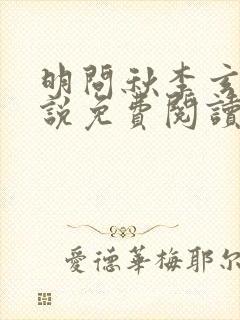 明問秋李玄
說免費閱讀
愛德華梅耶尔